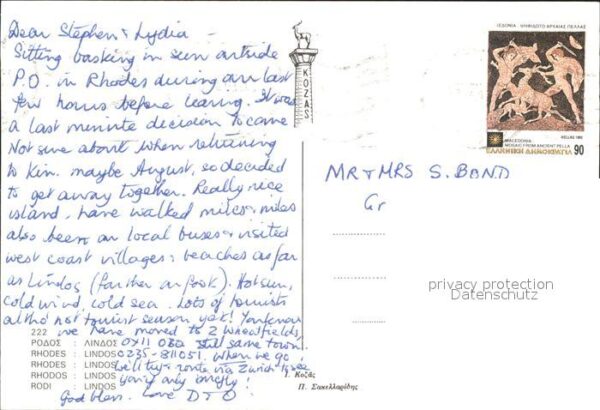 Dear Stephen & Lydia
Sitting basking in sun outside
P.O. in Rhodes during our last
few hours before leaving. It was
a last minute decision to come
Not sure about when returning
to Kin. maybe August, so decided
to get away together. Really nice
island, have walked miles & miles
also been on local buses & visited
west coast villages & beaches as far
as Lindos (farther on foot). Hot sun,
cold wind, cold sea. Lots of tourists
altho' not tourist season yet! You know
we have moved to 2 Wheatfields,
still same town
0235-811051. When we go
we'll try & route via Zurich to see
you if only briefly!
God bless. Love D & O
222
ΡΟΔΟΣ : ΛΙΝΔΟΣ
RHODES : LINDOS
RHODES : LINDOS
RHODOS : LINDOS
RODI : LINDOS
KOZAS
Ι. Κοζάς
Π. Σακελλαρίδης
ΙΣΔΟΝΙΑ - ΨΗΦΙΔΩΤΟ ΑΡΧΑΙΑΣ ΠΕΛΛΑΣ
MACEDONIA
MOSAIC FROM ANCIENT PELLA
HELLAS 1992
ΕΛΛΗΝΙΚΗ ΔΗΜΟΚΡΑΤΙΑ 90
MR & MRS S. BOND
Gr
privacy protection
Datenschutz